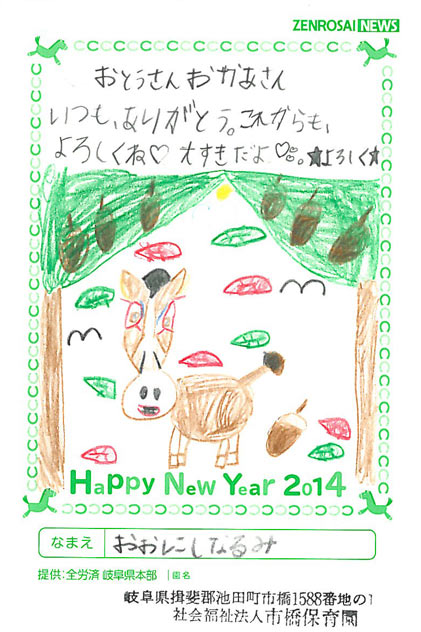 ZENROSAI NEWS
おとうさん おかあさん
いつも、ありがとう。これからも、
よろしくね♡ 大すきだよ♡。★よろしく★
Happy New Year 2014
なまえ おおにしなるみ
提供:全労済 岐阜県本部 園名
岐阜県揖斐郡池田町市橋1588番地の1
社会福祉法人市橋保育園